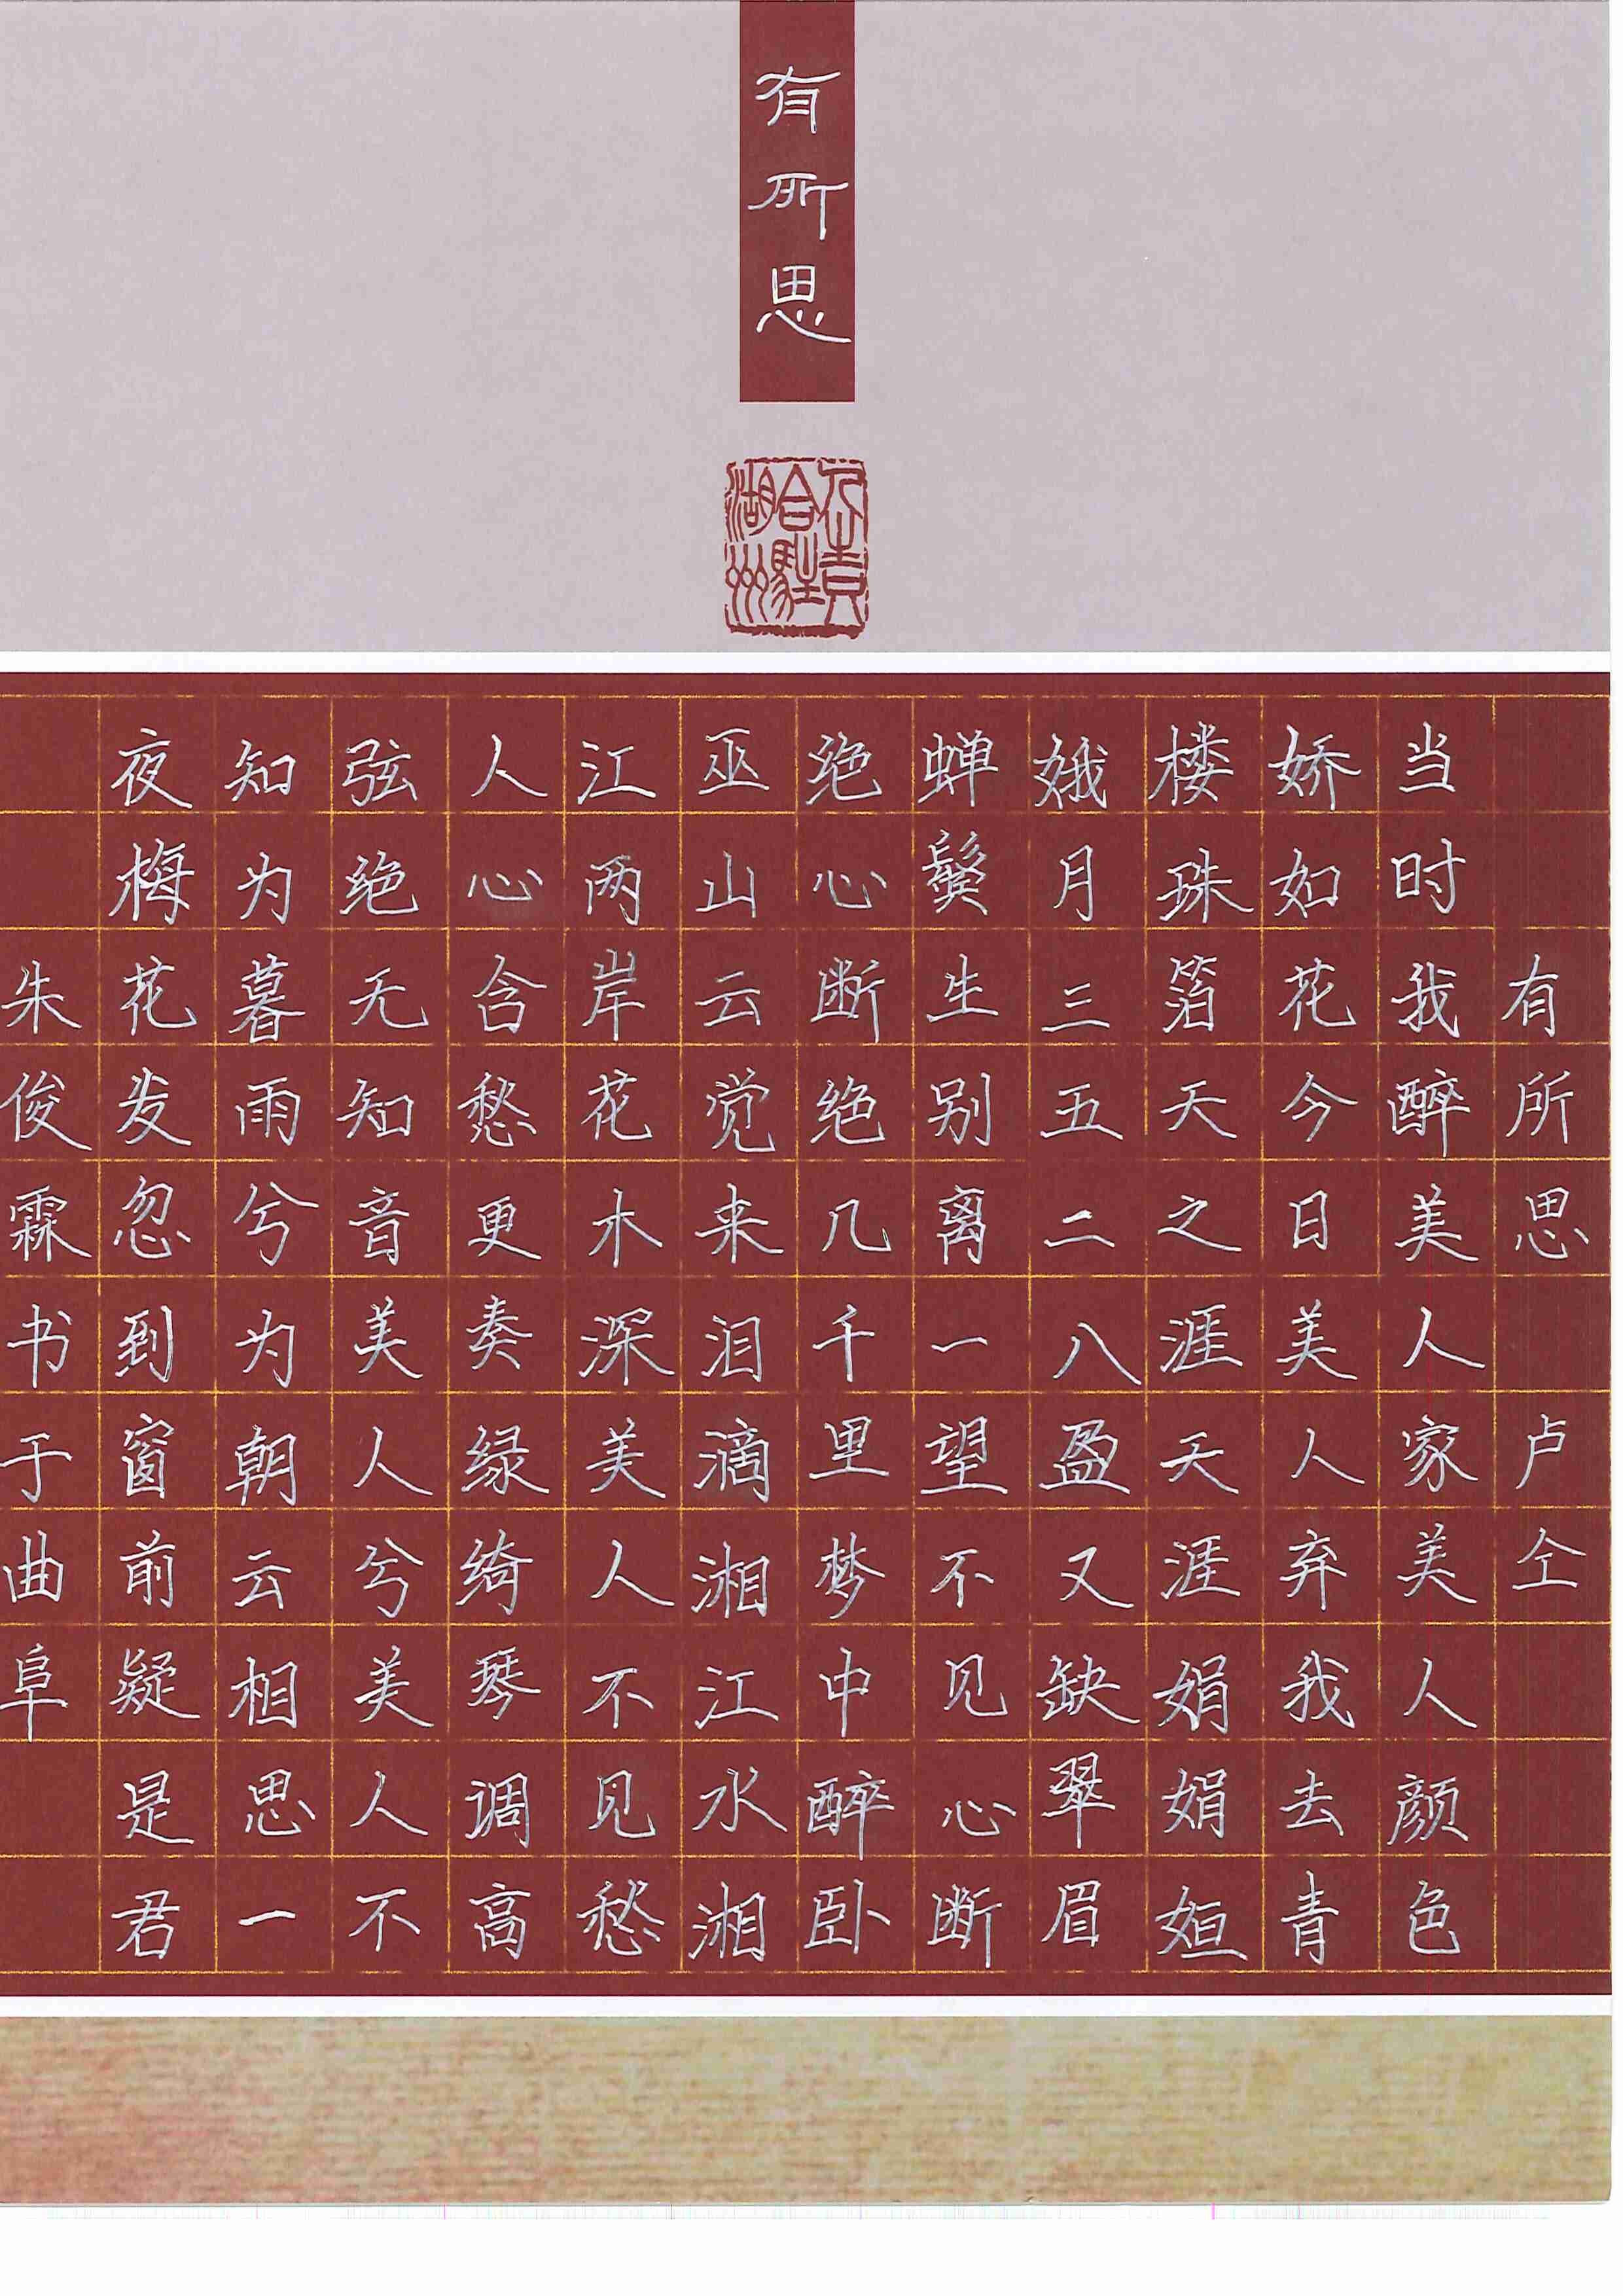 有所思
有所思 卢仝
当时我醉美人家美人颜色
娇如花今日美人弃我去青
楼珠箔天之涯天涯娟娟姮
娥月三五二八盈又缺翠眉
蝉鬓生别离一望不见心断
绝心断绝几千里梦中醉卧
巫山云觉来泪滴湘江水湘
江两岸花木深美人不见愁
人心含愁更奏绿绮琴调高
弦绝无知音美人兮美人不
知为暮雨兮为朝云相思一
夜梅花发忽到窗前疑是君
朱俊霖书于曲阜